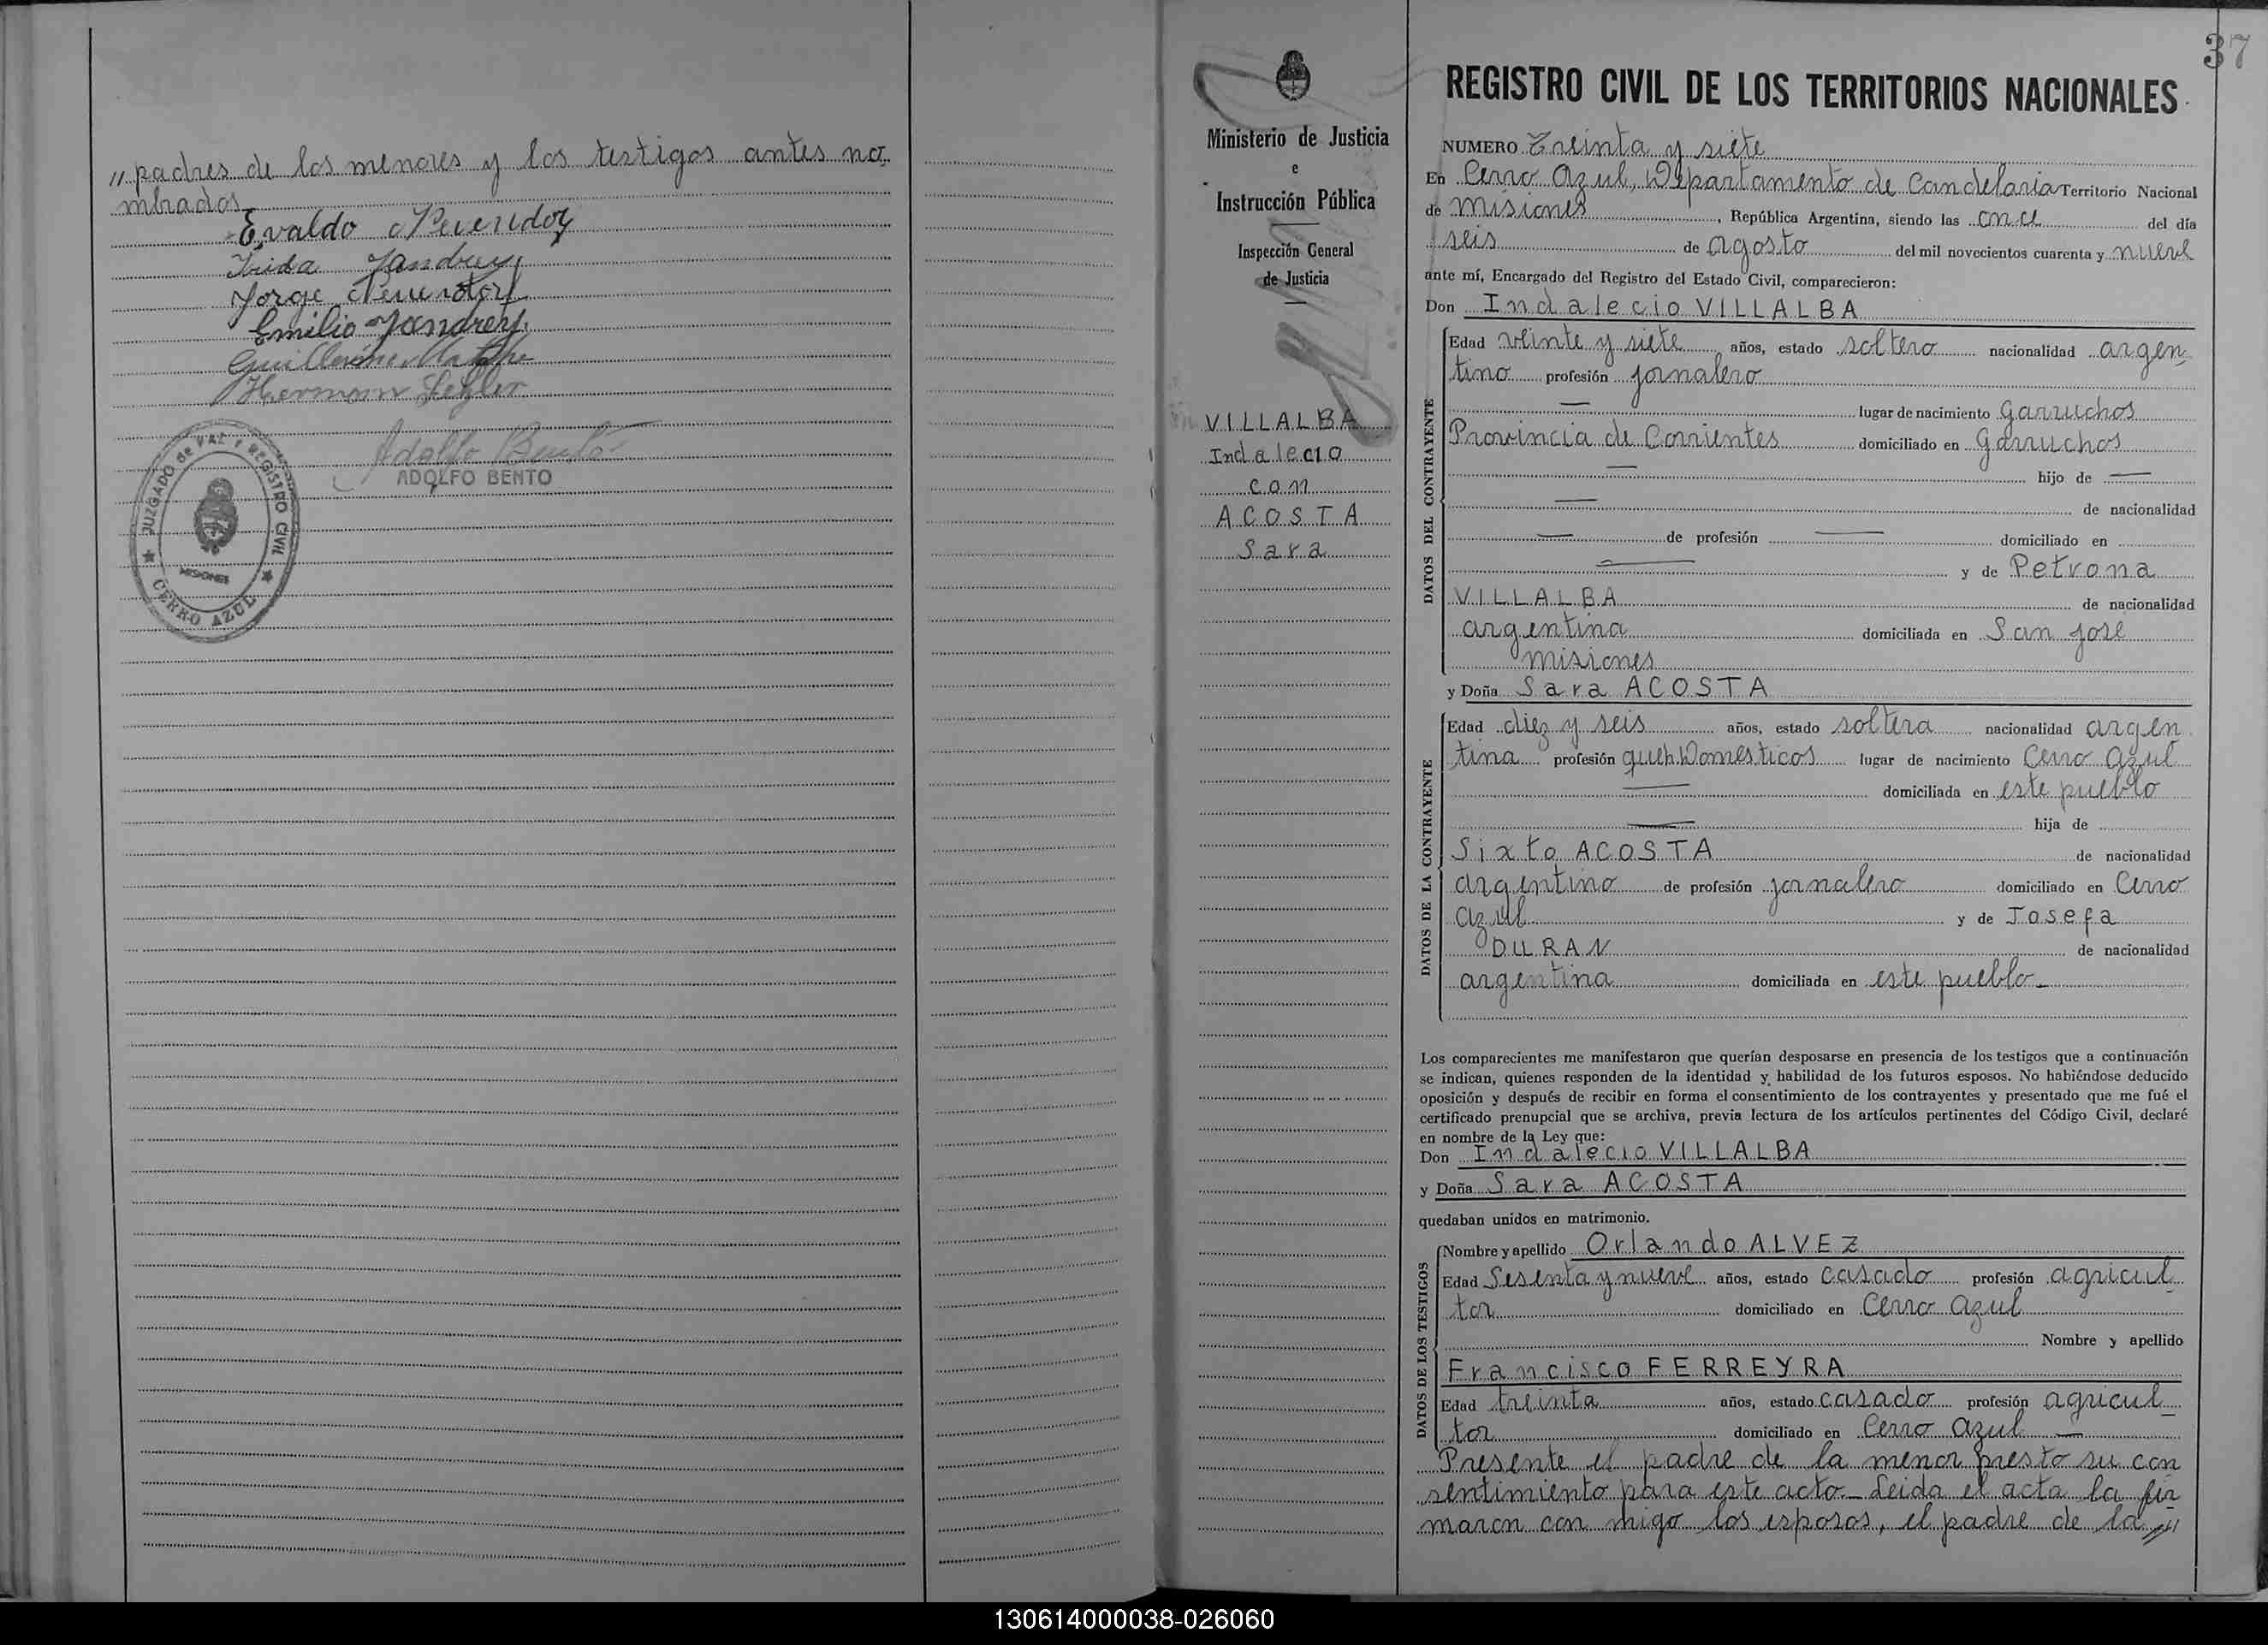 " padres de los menores y los testigos antes no
mbrados
Evaldo
Jorge
Emilio
JUZGADO de PAZ Y REGISTRO CIVIL
MISIONES
CERRO AZUL
Adolfo Bento
ADOLFO BENTO
Ministerio de Justicia
e
Instrucción Pública
Inspección General
de Justicia
VILLALBA
Indalecio
con
ACOSTA
Sara
37
REGISTRO CIVIL DE LOS TERRITORIOS NACIONALES
NUMERO Treinta y siete
En Cerro Azul, Departamento de Candelaria Territorio Nacional
de Misiones, República Argentina, siendo las once del día
seis de agosto del mil novecientos cuarenta y nueve
ante mí, Encargado del Registro del Estado Civil, comparecieron:
Don Indalecio VILLALBA
DATOS DEL CONTRAYENTE
Edad veinte y siete años, estado soltero nacionalidad argen
tino profesión jornalero
— lugar de nacimiento Garruchos
Provincia de Corrientes domiciliado en Garruchos
— hijo de —
— de nacionalidad
— de profesión — domiciliado en
— y de Petrona
VILLALBA de nacionalidad
argentina domiciliada en San José
Misiones
y Doña Sara ACOSTA
DATOS DE LA CONTRAYENTE
Edad diez y seis años, estado soltera nacionalidad argen
tina profesión queh. Domésticos lugar de nacimiento Cerro Azul
— domiciliada en este pueblo
— hija de
Sixto ACOSTA de nacionalidad
argentino de profesión jornalero domiciliado en Cerro
Azul y de Josefa
DURAN de nacionalidad
argentina domiciliada en este pueblo—
Los comparecientes me manifestaron que querían desposarse en presencia de los testigos que a continuación
se indican, quienes responden de la identidad y habilidad de los futuros esposos. No habiéndose deducido
oposición y después de recibir en forma el consentimiento de los contrayentes y presentado que me fué el
certificado prenupcial que se archiva, previa lectura de los artículos pertinentes del Código Civil, declaré
en nombre de la Ley que:
Don Indalecio VILLALBA
y Doña Sara ACOSTA
quedaban unidos en matrimonio.
DATOS DE LOS TESTIGOS
Nombre y apellido Orlando ALVEZ
Edad Sesenta y nueve años, estado casado profesión agricul
tor domiciliado en Cerro Azul
Nombre y apellido
Francisco FERREYRA
Edad treinta años, estado casado profesión agricul
tor domiciliado en Cerro Azul —
Presente el padre de la menor presto su con
sentimiento para este acto— Leida el acta la fir
maron con migo los esposos, el padre de la "
130614000038-026060